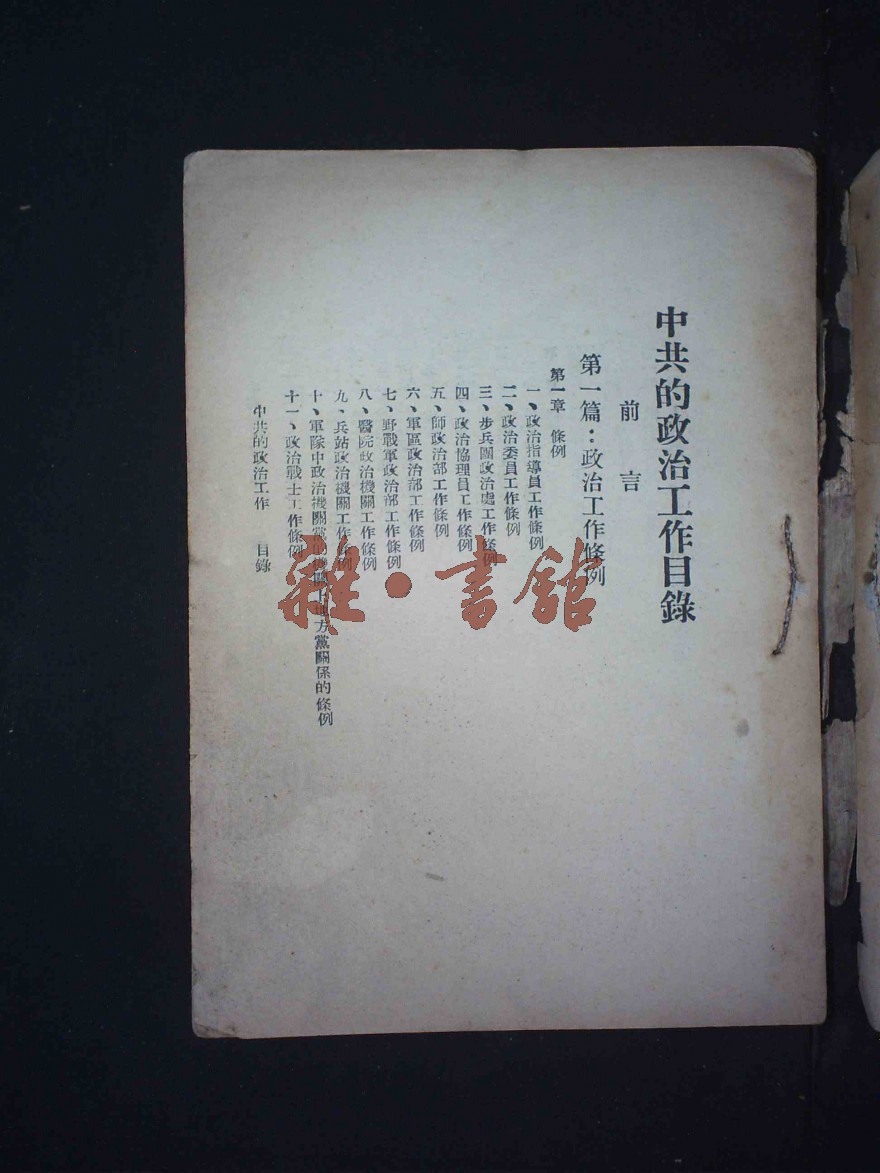 中共的政治工作目錄
前言
第一篇：政治工作條例
第一章 條例
一、政治指導員工作條例
二、政治委員工作條例
三、步兵團政治處工作條例
四、政治協理員工作條例
五、師政治部工作條例
六、軍區政治部工作條例
七、野戰軍政治部工作條例
八、醫院政治機關工作條例
九、兵站政治機關工作條例
十、軍隊中政治機關黨的機關 地方黨關係的條例
十一、政治戰士工作條例
中共的政治工作 目錄
雜·書館